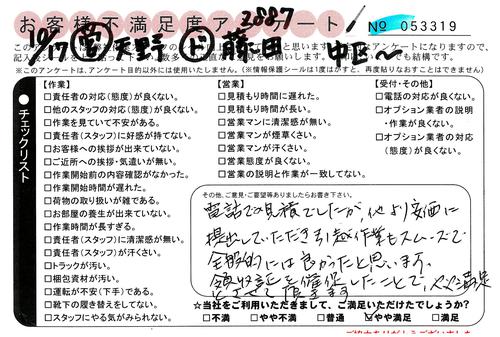 お客様不満足度アンケート!
2887
№ 053319
10/17 営 天野 ド 藤田 中区〜
※このアンケートは、アンケート目的以外には使用いたしません。(※情報保護シールは1度はがすと、再度貼りなおすことはできません)
●チェックリスト
【作業】
□責任者の対応(態度)が良くない。
□他のスタッフの対応(態度)が良くない。
□作業を見ていて不安がある。
□責任者(スタッフ)に好感が持てない。
□お客様への挨拶が出来ていない。
□ご近所への挨拶・気遣いが無い。
□作業開始前の内容確認がなかった。
□作業開始時間が遅れた。
□荷物の取り扱いが雑である。
□お部屋の養生が出来ていない。
□作業時間が長すぎる。
□責任者(スタッフ)に清潔感が無い。
□責任者(スタッフ)が汗くさい。
□トラックが汚い。
□梱包資材が汚い。
□運転が不安(下手)である。
□靴下の履き替えをしてない。
□スタッフにやる気がみられない。
【営業】
□見積もり時間に遅れた。
□見積もり時間が長い。
□営業マンに清潔感が無い。
□営業マンが煙草くさい。
□営業マンが汗くさい。
□営業態度が良くない。
□営業の説明と作業が一致してない。
【受付・その他】
□電話の対応が良くない。
□オプション業者の説明
・作業が良くない。
□オプション業者の対応
(態度)が良くない。
その他、ご意見・ご要望等ありましたらお書き下さい。
電話での見積でしたが、他より安価に
提出していただき引越作業もスムーズで
全般的には良かったと思います。
領収証を催促したことで、やや満足
とさせて頂きます
☆当社をご利用いただきまして、ご満足いただけたでしょうか?
□不満 □やや不満 □普通 ☑やや満足 □満足